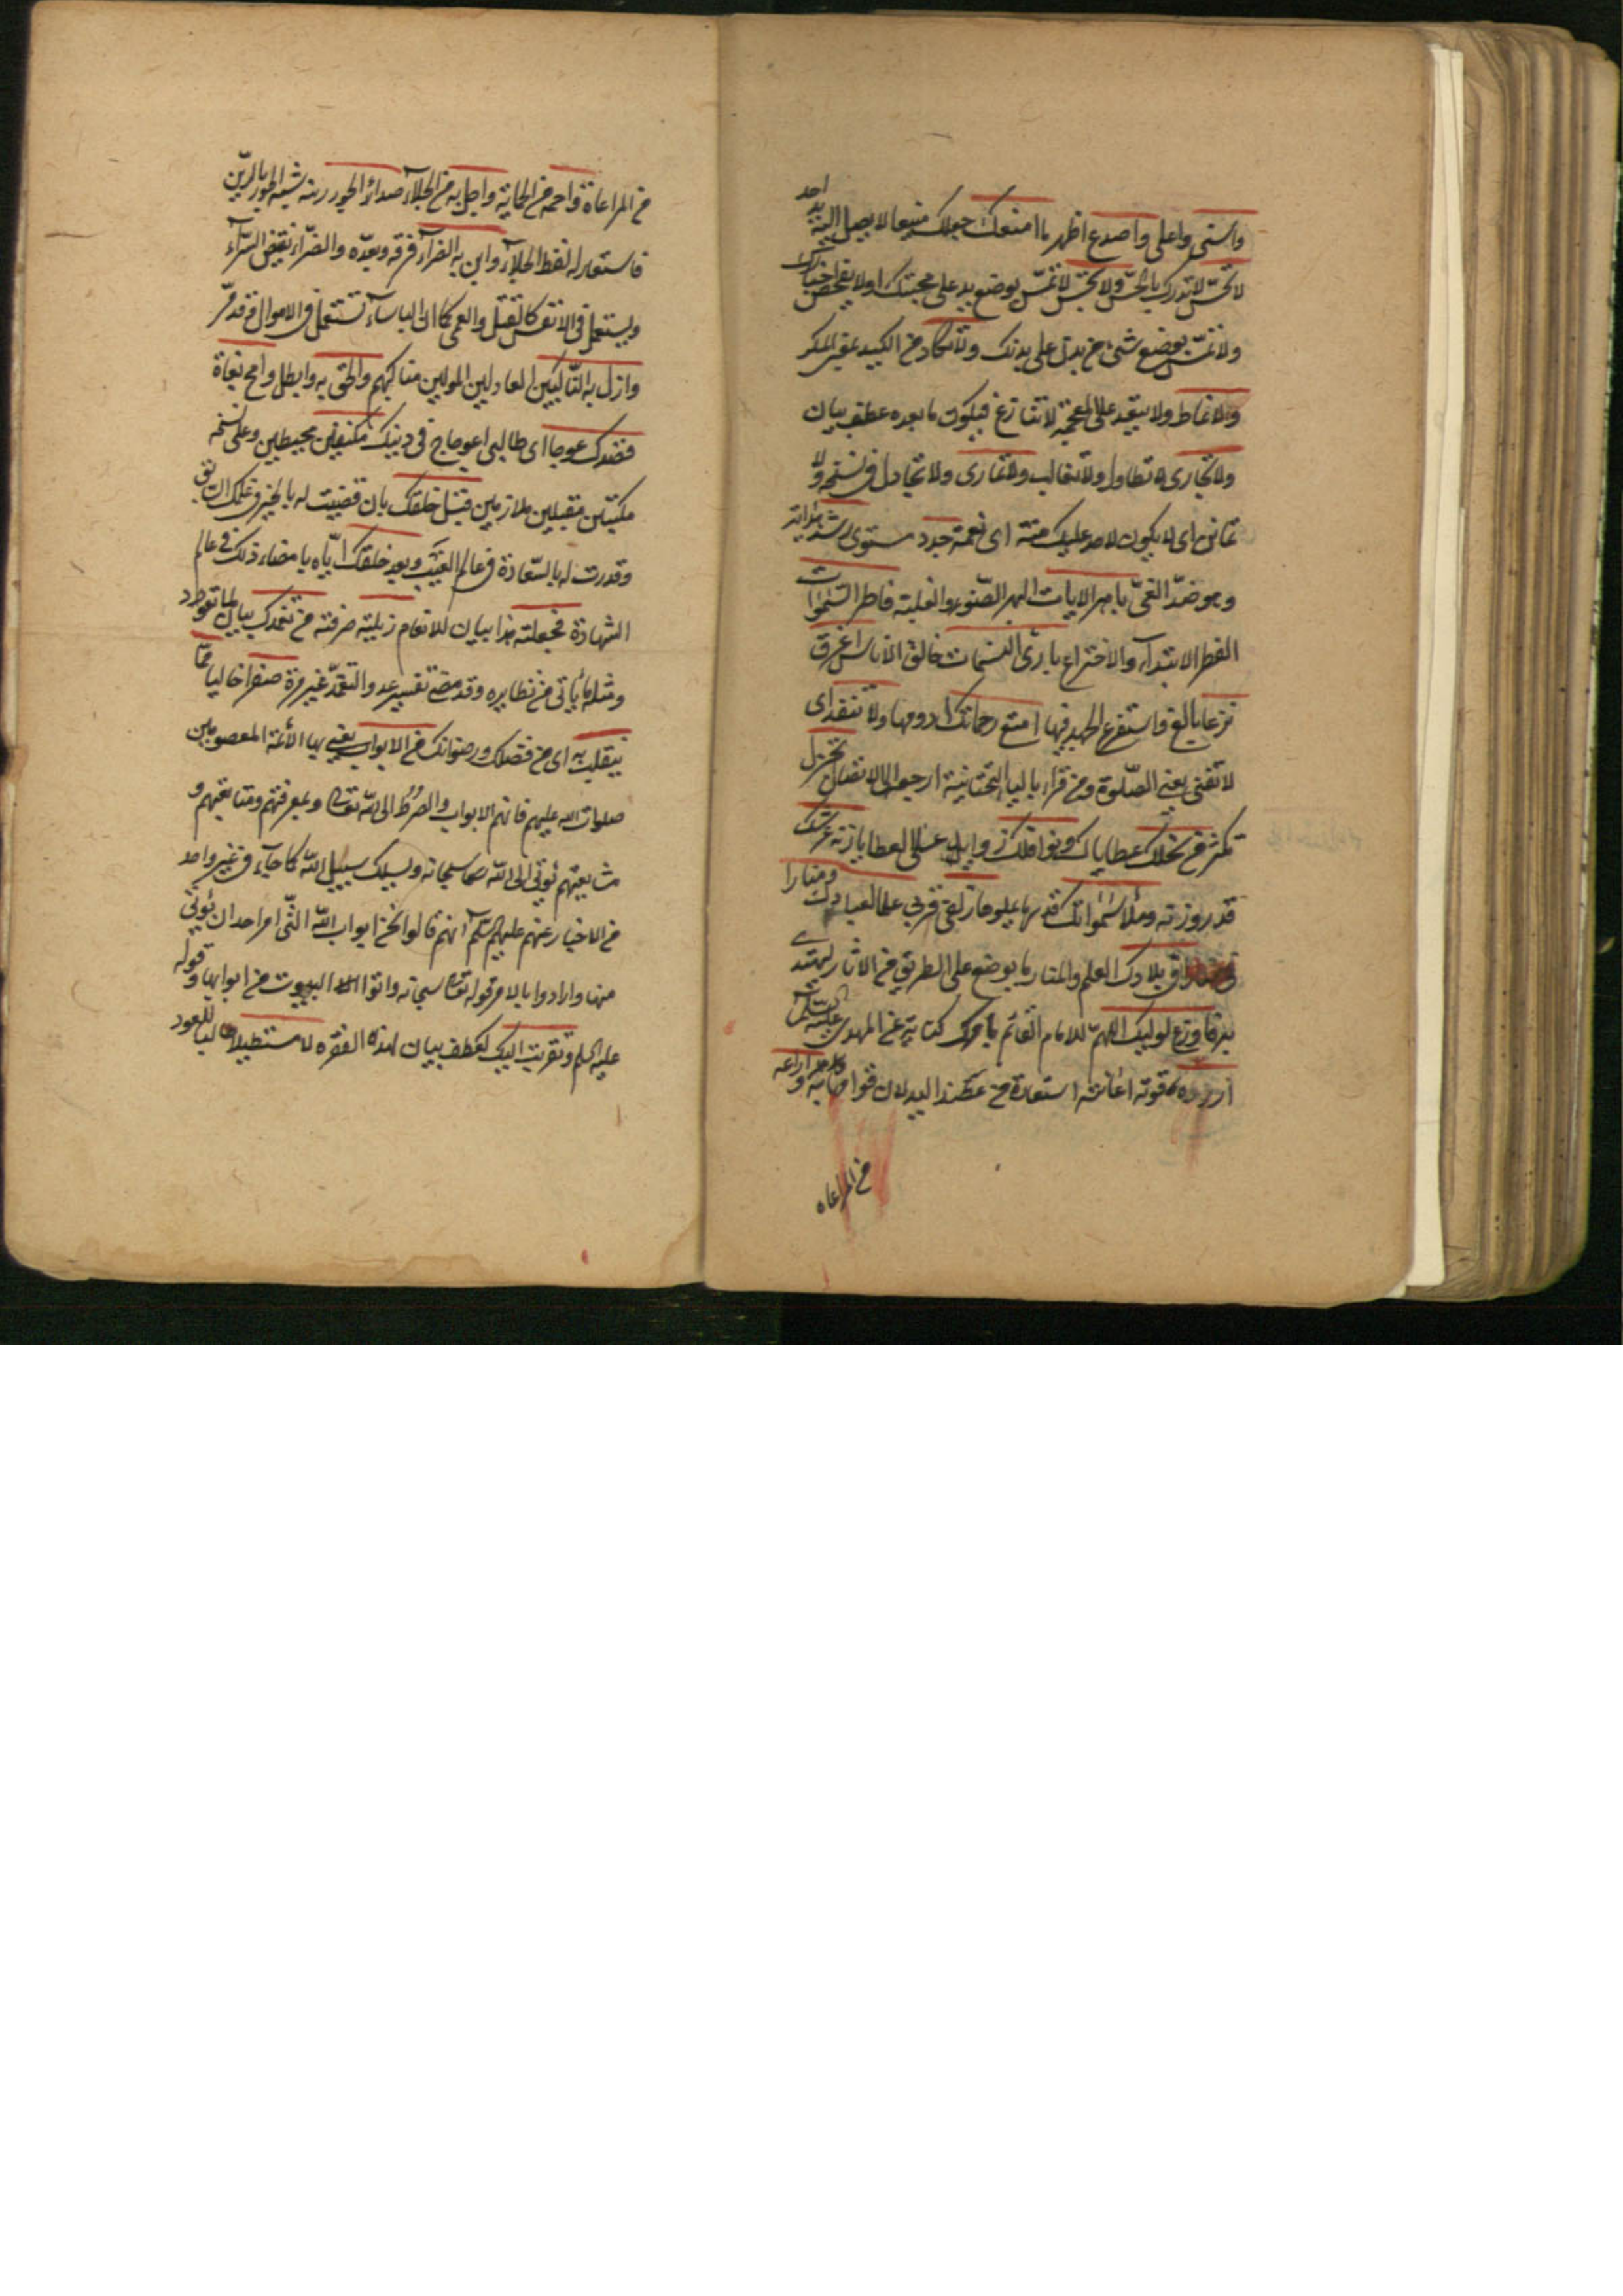 واسنى واعلى واصدع اظهر ما امنعك جعلك منيعا لا يصل اليه يد احد
لا تحسّ لا تدرك بالحسّ ولا تجسّ لا تمسّ بوضع يد على مجسّتك اولا يتفحص اخبارك
ولا تمسّ بوضع شئ من بدن على بدنك ولا تكاد من الكيد بمعنى المكر
ولا تماط ولا يبتعد على المعجمة لا تنازع فيكون ما بعده عطف بيان
ولا تجارى لا تطاول ولا تغالب ولا تمارى ولا تجادل فى نسخة ولا
تمانن اى لا يكون لاحد عليك منة اى نعمة جدد مستوى رشد هداية
وهو ضدّ الغىّ باهر الايات البهر الضوء والغلبة فاطر السموات
الفطر الابتداء والاختراع بارئ النسمات خالق الاناس اغرق
نزعا بالغ واستفرغ الجهد فيها امتع رحماتك ادومها ولا تنفد اى
لا تفنى يعنى الصلوة ومن قرأ بالياء التحتانية ارجعها الى الافضال تجزل
تكثر من نحلك عطاياك ونوافلك زوايد على العطايا زنة عرشك
قدر وزنه وملأ سمواتك قدرها علوها زلفى قربى علما لعبادك ومنارا
فى بلادك العلم والمنار ما يوضع على الطريق من الاثار ليهتدى
بها فاوزع لوليك اللهم للامام القائم بامرك كناية عن المهدى عليه السلم
ازره قوته اغاثته استعارة من عضد اليد لان قوامها به وراعه
من المراعاه
من المراعاة واحمه من الحماية واجل به من الجلاء صداء الجور رينه شبه الجور بالرين
فاستعار له لفظ الجلاء وابن به الضراء فرقه وبعّده والضراء نقيض السراء
ويستعمل فى الانفس كالقتل والعمى كما ان الباساء تستعمل فى الاموال وقد مرّ
وازل به الناكبين العادلين المولين مناكبهم وامحق به وابطل وامح بغاة
قصدك عوجا اى طالبى اعوجاج فى دينك مكتنفين محيطين وعلى نسخة
مكبتين مقبلين ملازمين قبل خلقك بان قضيت له بالخير فى علمك السابق
وقدرت له بالسعادة فى عالم الغيب وبعد خلقك اياه بامضاء ذلك فى عالم
الشهادة فجعلته هذا بيان للانعام زيلته صرفته من تغمدك بيان لما تعود
ومثله ياتى فى نظايره وقد مضى تفسير عد والتغمد غير مرة صفرا خاليا مما
ينقلب به اى من فضلك ورضوانك من الابواب يعنى بها الائمة المعصومين
صلوات الله عليهم فانهم الابواب والصرط الى الله تعالى وبمعرفتهم ومتابعتهم و
مشايعتهم يؤتى الى الله سبحانه ويسلك سبيل الله كما جاء فى غير واحد
من الاخبار عنهم عليهم السلم انهم قالوا نحن ابواب الله التى امر احد ان يؤتى
منها وارادوا بالامر قوله سبحانه واتوا البيوت من ابوابها وقوله
عليه السلم وتقربت اليك كعطف بيان لهذه الفقرة لا مستطيلا طالبا للعود